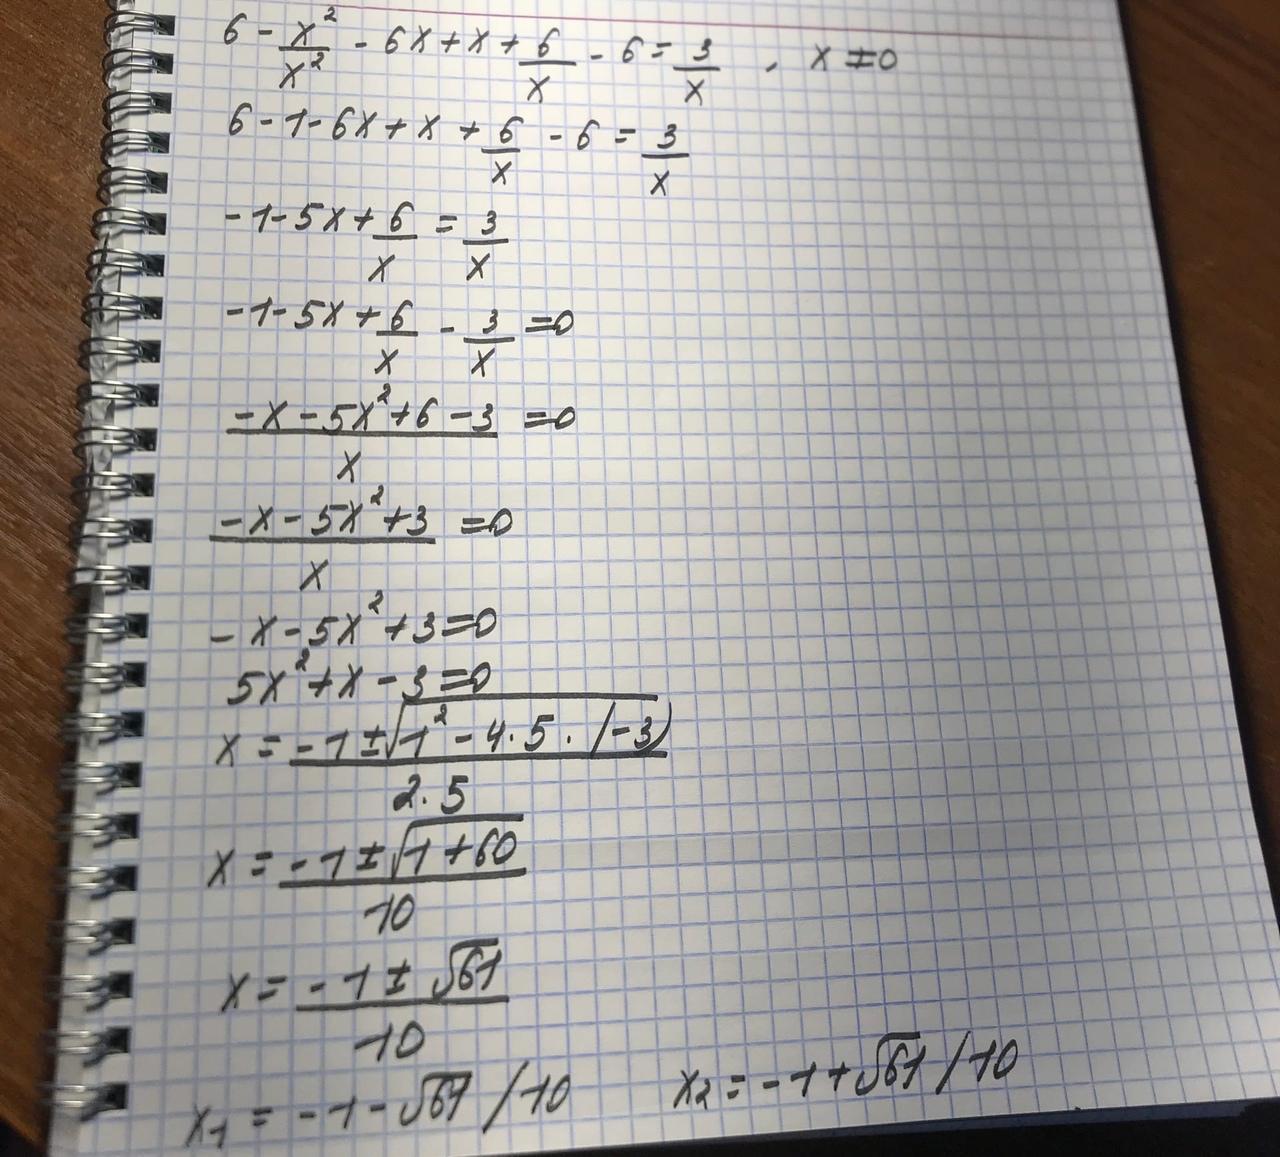 6 - x²/x² - 6x + x + 6/x - 6 = 3/x , x ≠ 0
6 - 1 - 6x + x + 6/x - 6 = 3/x
-1 - 5x + 6/x = 3/x
-1 - 5x + 6/x - 3/x = 0
(-x - 5x² + 6 - 3)/x = 0
(-x - 5x² + 3)/x = 0
-x - 5x² + 3 = 0
5x² + x - 3 = 0
x = (-1 ± √(1² - 4·5·(-3)))/(2·5)
x = (-1 ± √(1 + 60))/10
x = (-1 ± √61)/10
x₁ = -1 - √61 / 10 x₂ = -1 + √61 / 10